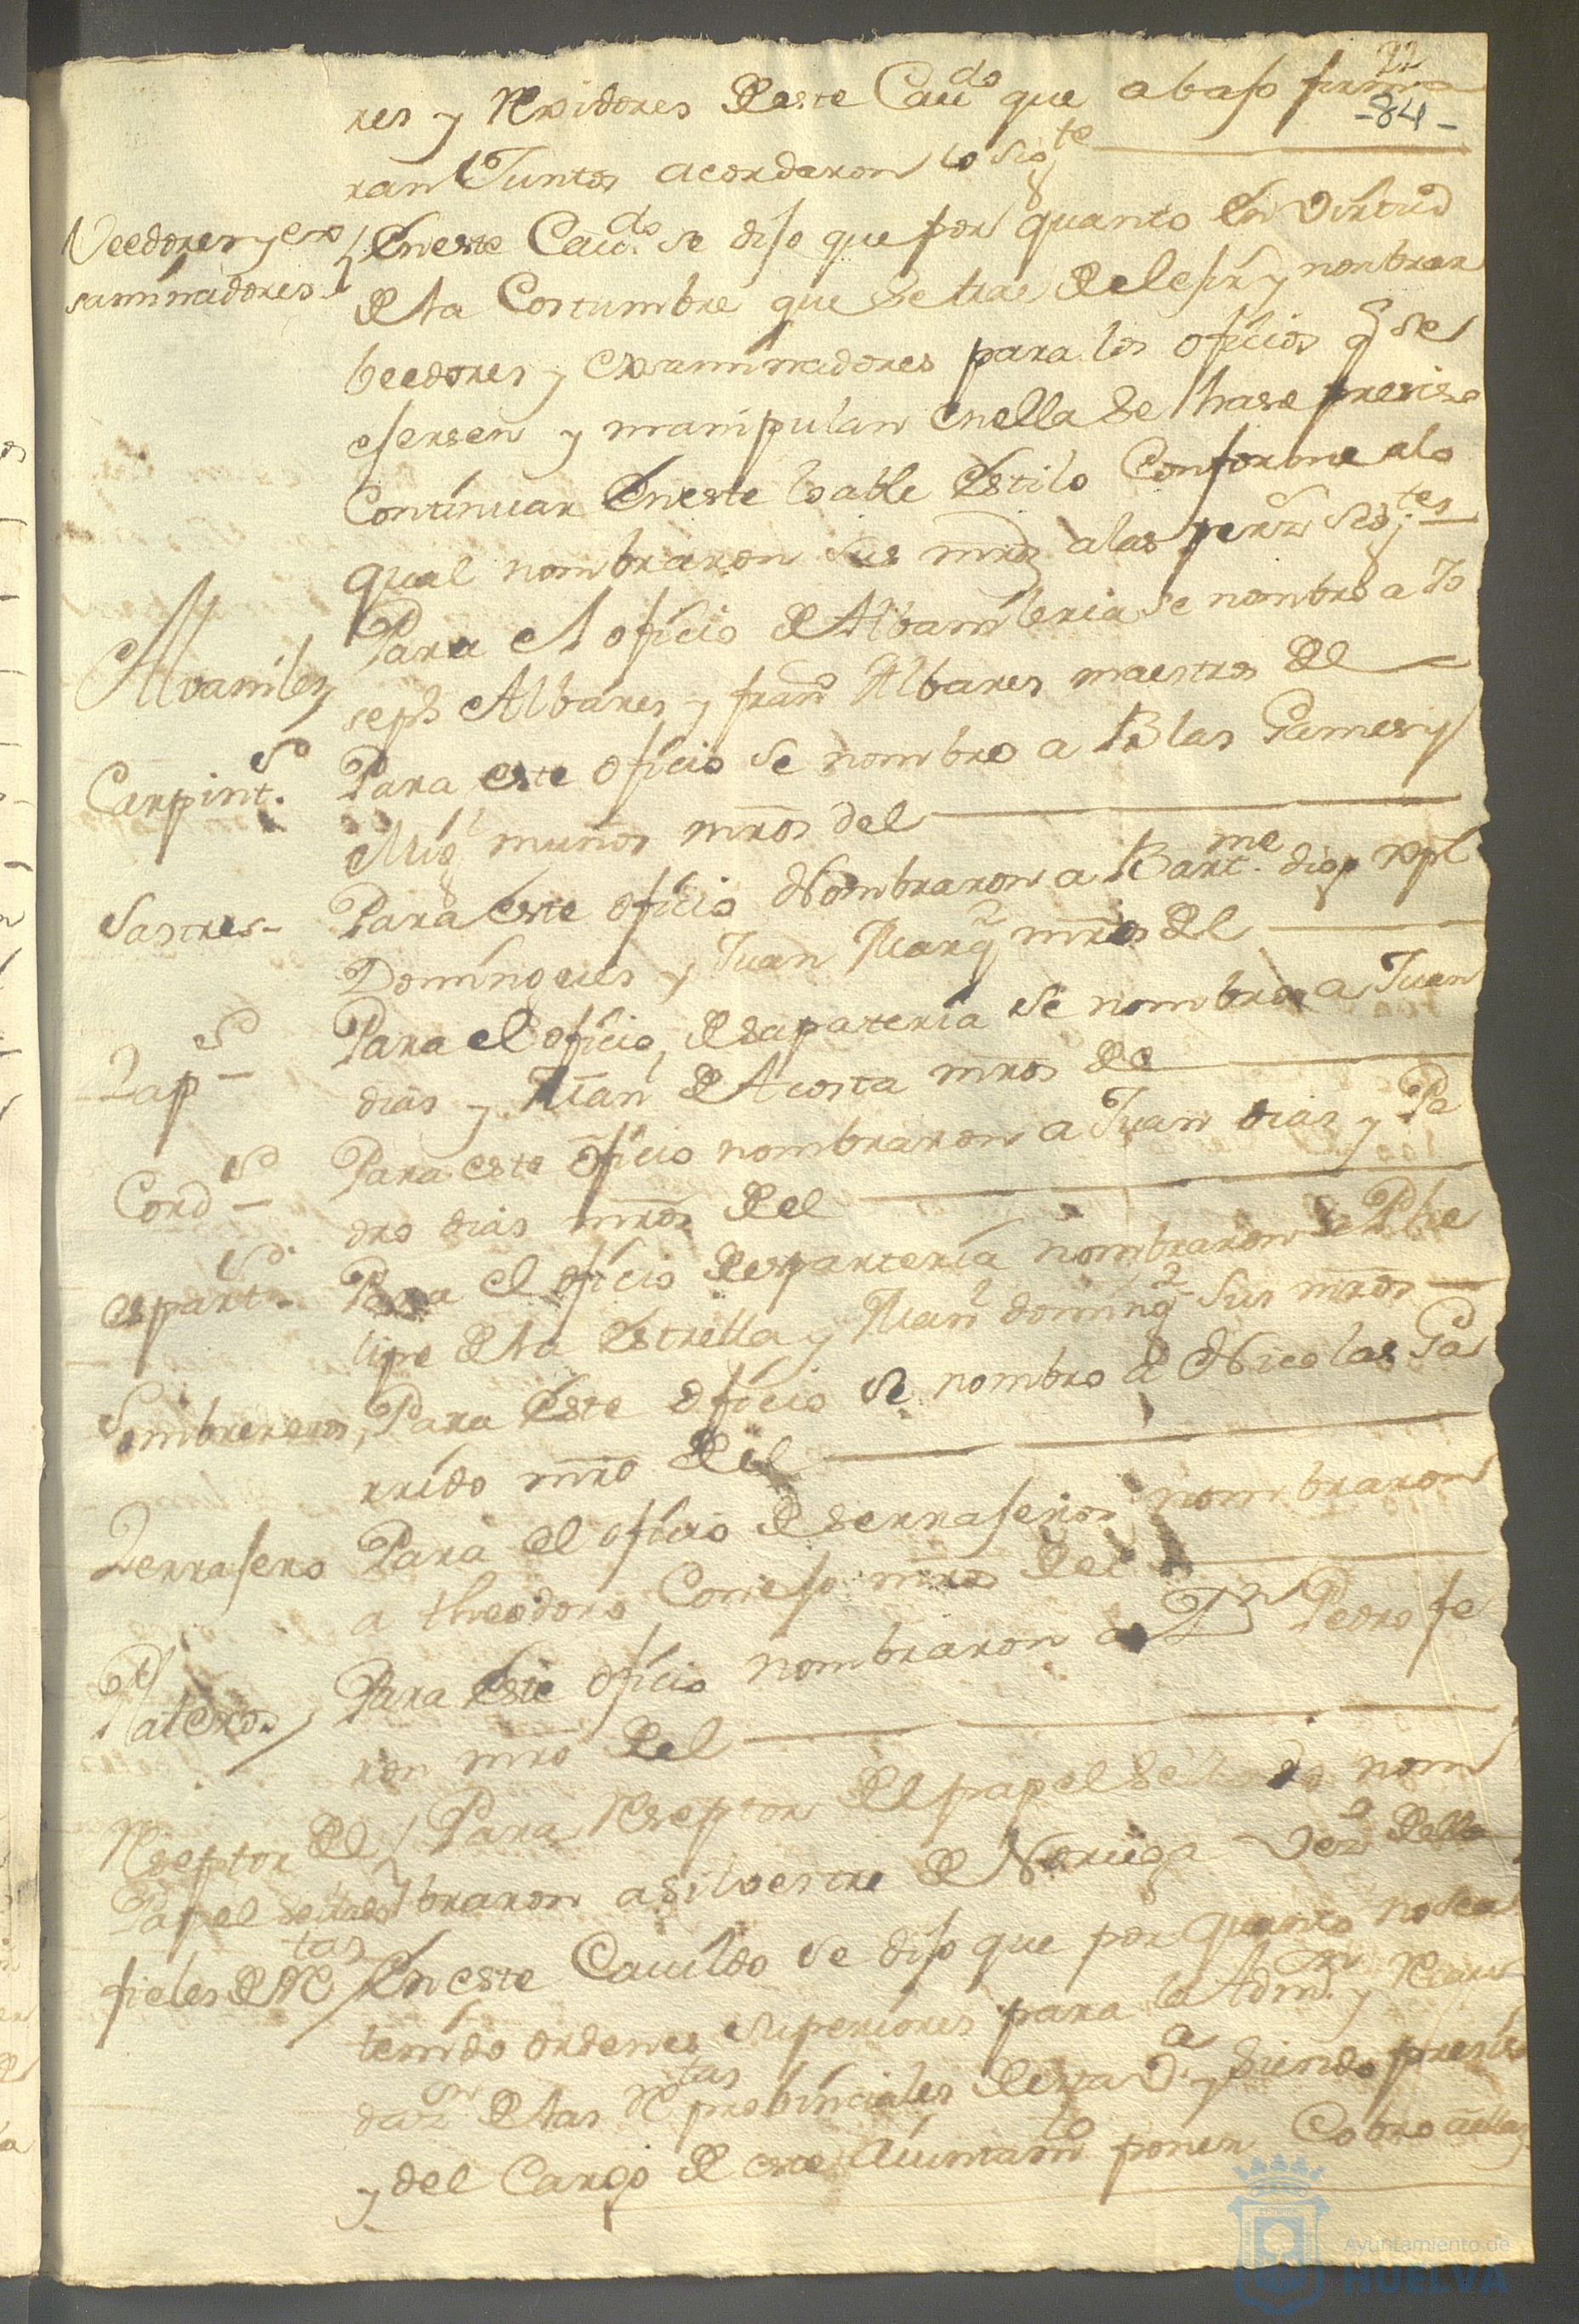 22
res y Rexidores de este Cauᵈᵒ que abajo firma
-84-
ran Juntos acordaron lo sigᵗᵉ
Veedores y exa
saminadores
En este Cauᵈᵒ se dijo que por quanto en virtud
de la Costumbre que se trae de elejir y nonbrar
beedores y examinadores para los oficios q se
ejersen y manipulan en ella se hase presiso
Continuar en este loable estilo Conforme a lo
qual nombraron sus mrds a las persˢ sigᵗᵉˢ
Alvaniles
Para el oficio de Albañileria se nombro a Jo
seph Albares y franᶜᵒ Albares maestros de el
Carpintˢ
Para este oficio se nombro a Blas Gamesy
Migˡ muños mrōs del
Sastres
Para este oficio Nombraron a Bartᵐᵉ
Domingues y Juan Marqᶻ mrōs del
Zapˢ
Para el oficio de sapateria se nombro a Juan
dias y Juan de Acosta mrōs de
Cordˢ
Para este oficio nombraron a Juan dias y Pe
dro dias mrōs del
espartˢ
Para el oficio de esparteria nombraron a Phe
lipe de la Estrella y Manˡ domingᶻ sus mrōs
Sombrereros,
Para este oficio se nombro a Nicolas Ga
rrido mrō del
Zerrajero
Para el oficio de serrajeros nombraron
a theodoro Conejo mrōs del
Plateros
Para este oficio nombraron a Dⁿ Pedro fe
rer mrō del
Reseptor del
Papel sellado
Para Reseptor del papel sellado nom
braron a silvestre de Noriega Vezᵒ de ella
fieles de Rᵗᵃˢ
En este Cauildo se dijo que por quanto no sea
tenido ordenes superiores para la Admᵒⁿ y Recau
dazᵒⁿ de las Rᵗᵃˢ probinciales de esta Vᵃ y siendo presiso
y del Cargo de este Aiuntamᵗᵒ poner Cobro a ellas
Ayuntamiento de
HUELVA